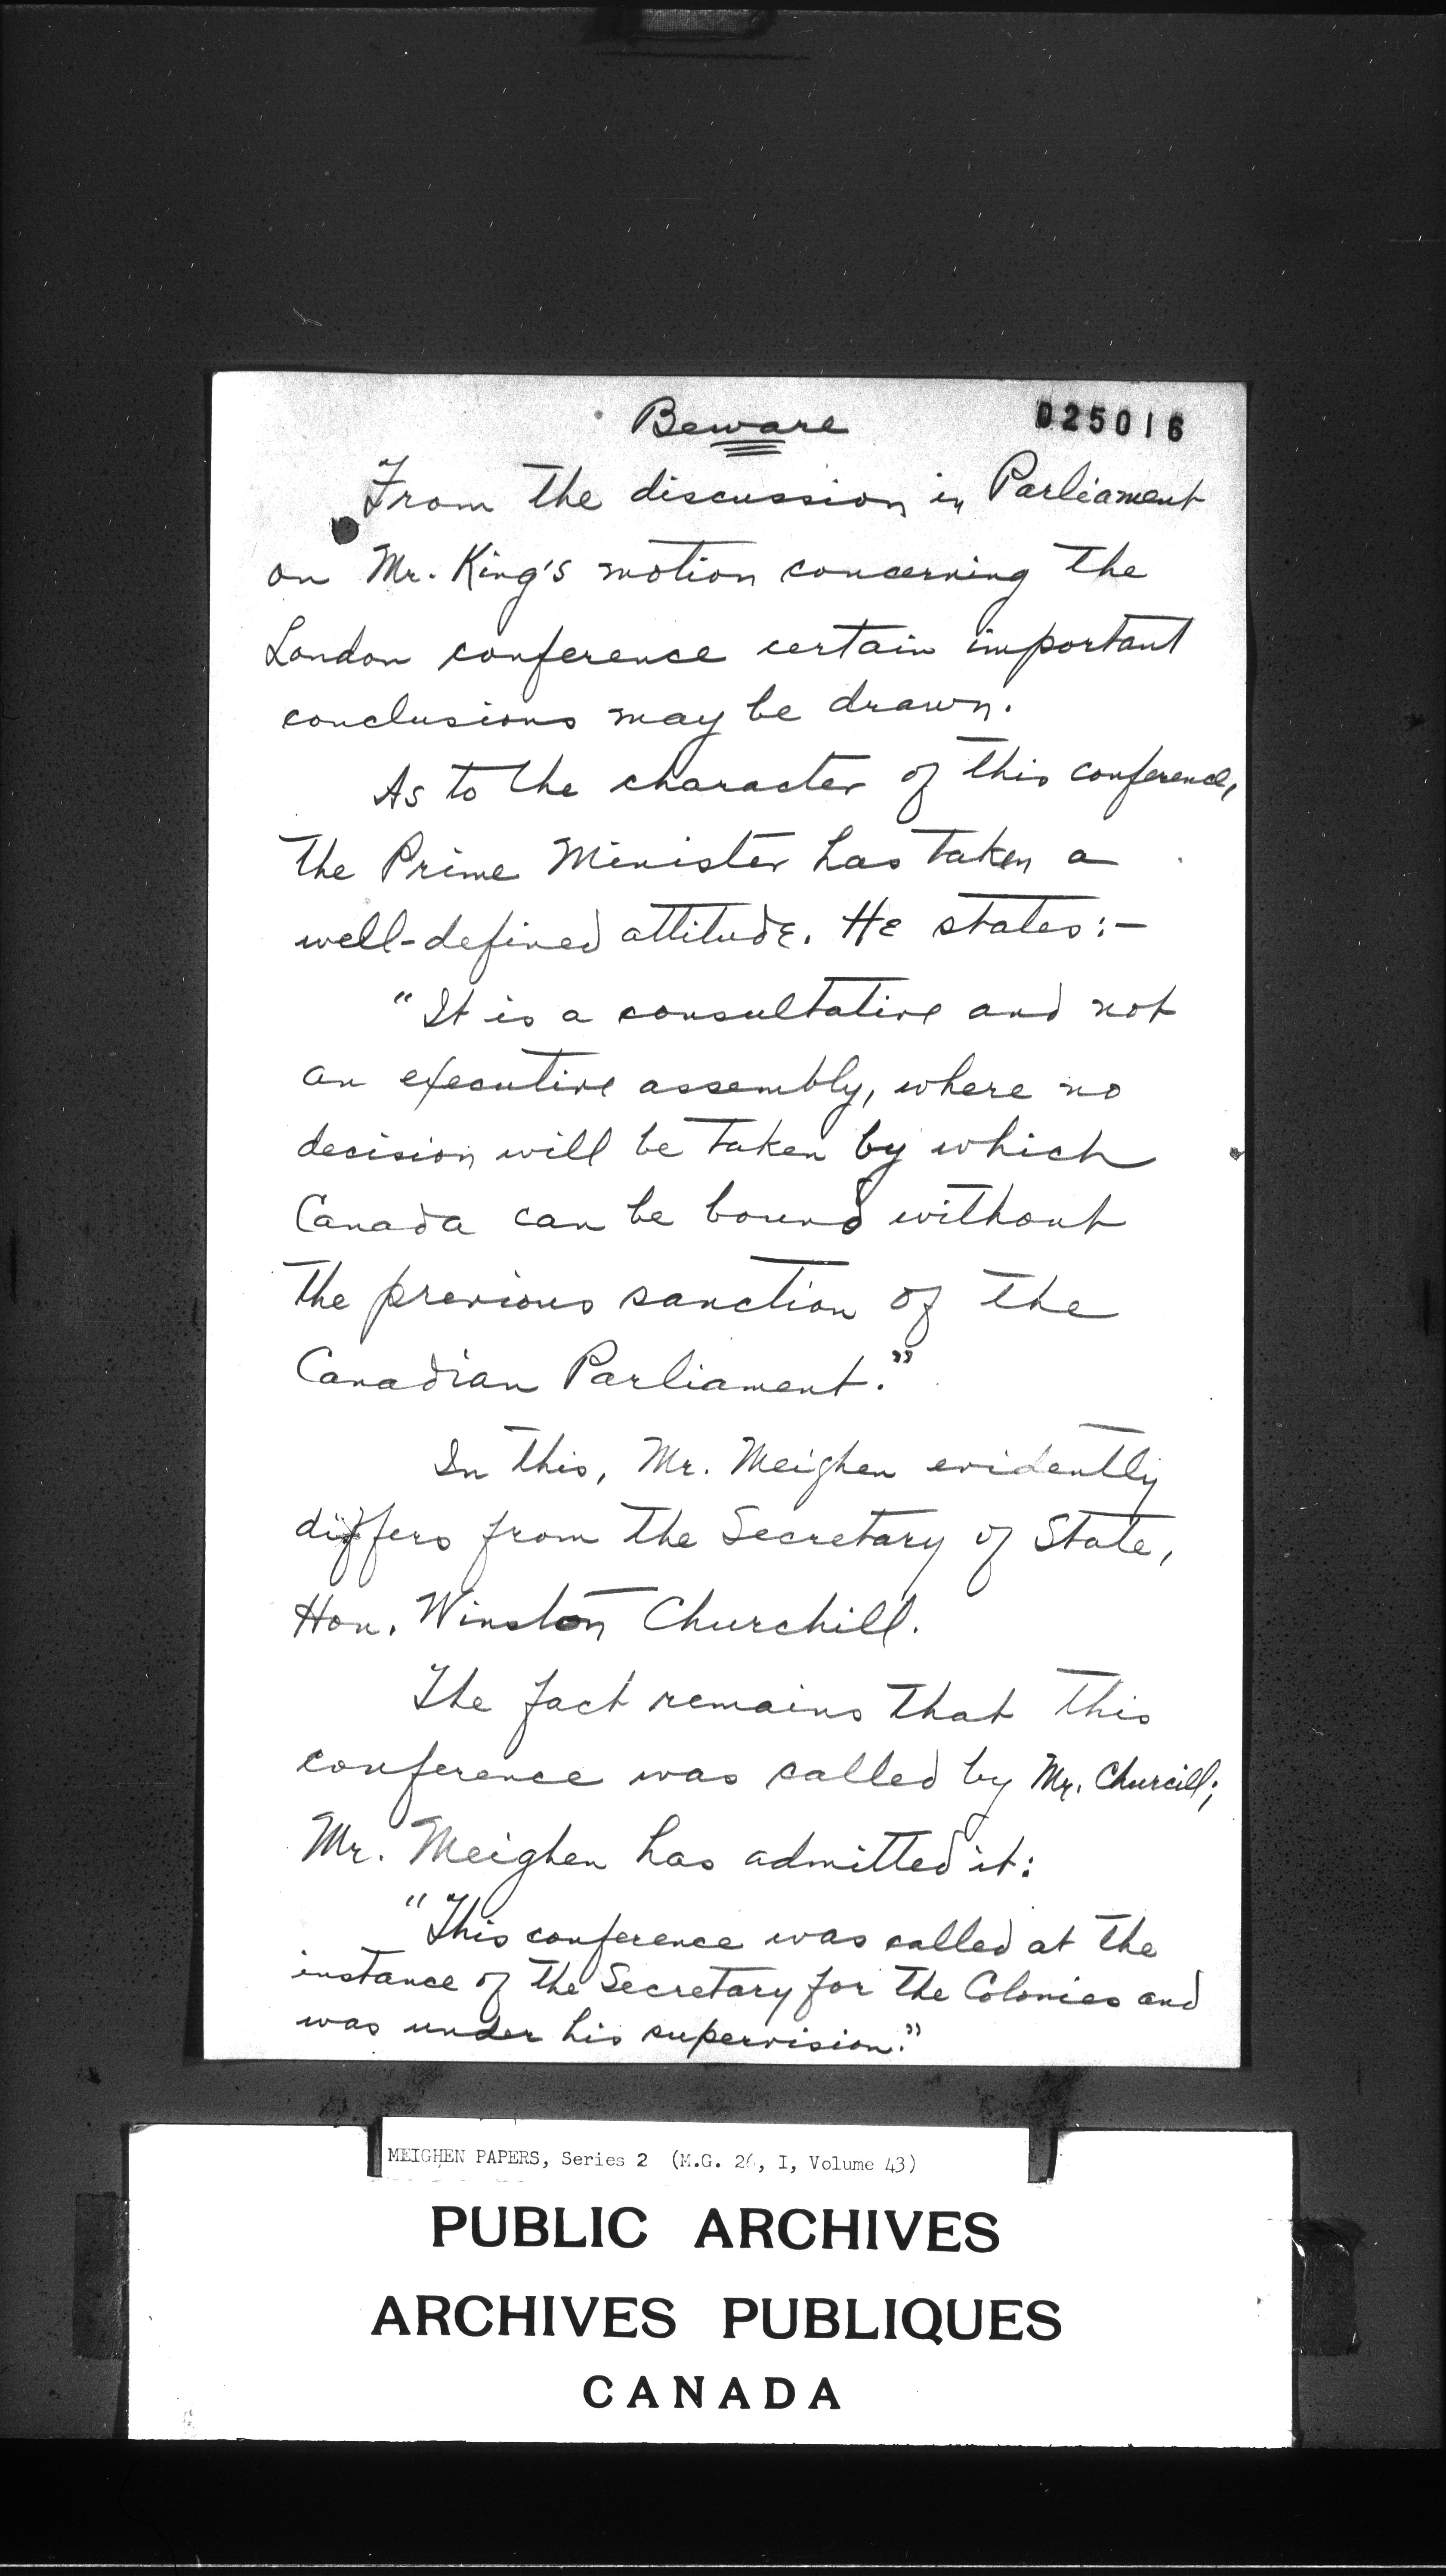 Beware
025016
From the discussion in Parliament
on Mr. King's motion concerning the
London conference certain important
conclusions may be drawn.
As to the character of this conference,
the Prime Minister has taken a
well-defined attitude. He states:-
"It is a consultative and not
an executive assembly, where no
decision will be taken by which
Canada can be bound without
the previous sanction of the
Canadian Parliament."
In this, Mr. Meighen evidently
differs from the Secretary of State,
Hon. Winston Churchill.
The fact remains that this
conference was called by Mr. Churcill;
Mr. Meighen has admitted it:
"This conference was called at the
instance of the Secretary for the Colonies and
was under his supervision."
MEIGHEN PAPERS, Series 2 (M.G. 26, I, Volume 43)
PUBLIC ARCHIVES
ARCHIVES PUBLIQUES
CANADA